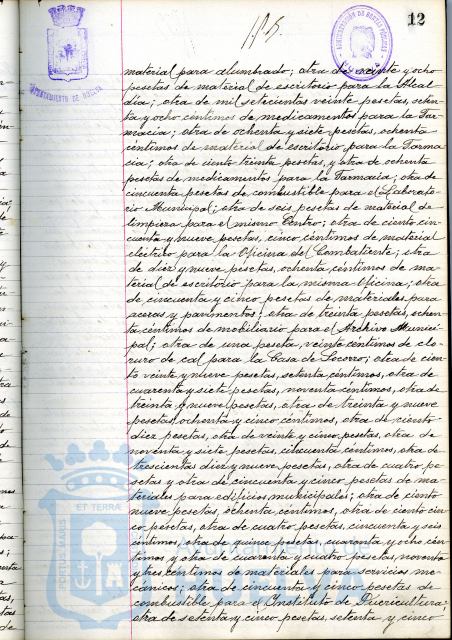 12
material para alumbrado; otra de veinte y ocho
pesetas de material de escritorio para la Alcal-
día; otra de mil setecientas veinte pesetas, ochen-
ta y ocho céntimos de medicamentos para la Far-
macia; otra de ochenta y siete pesetas, ochenta
céntimos de material de escritorio para la Farma-
cia; otra de ciento treinta pesetas, y otra de ochenta
pesetas de medicamentos para la Farmacia; otra de
cincuenta pesetas de combustible para el Laborato-
rio Municipal; otra de seis pesetas de material de
limpieza para el mismo Centro; otra de ciento cin-
cuenta y nueve pesetas, cinco céntimos de material
eléctrico para la Oficina del Combatiente; otra
de diez y nueve pesetas, ochenta céntimos de ma-
terial de escritorio para la misma Oficina; otra
de cincuenta y cinco pesetas de materiales para
aceras y pavimentos; otra de treinta pesetas, ochen-
ta céntimos de mobiliario para el Archivo Munici-
pal; otra de una peseta veinte céntimos de clo-
ruro de cal para la Casa de Socorro; otra de cien-
to veinte y nueve pesetas, setenta céntimos, otra de
cuarenta y siete pesetas, noventa céntimos, otra de
treinta y nueve pesetas, otra de treinta y nueve
pesetas, ochenta y cinco céntimos, otra de ciento
diez pesetas, otra de veinte y cinco pesetas, otra de
noventa y siete pesetas, cincuenta céntimos, otra de
trescientas diez y nueve pesetas, otra de cuatro pe-
setas y otra de cincuenta y cinco pesetas de ma-
teriales para edificios municipales; otra de ciento
nueve pesetas, ochenta céntimos, otra de ciento cin-
co pesetas, otra de cuatro pesetas, cincuenta y seis
céntimos, otra de quince pesetas, cuarenta y ocho cén-
timos y otra de cuarenta y cuatro pesetas, noventa
y tres céntimos de materiales para servicios me-
cánicos; otra de cincuenta y cinco pesetas de
combustible para el Instituto de Puericultura;
otra de setenta y cinco pesetas, setenta y cinco
AYUNTAMIENTO DE HUELVA